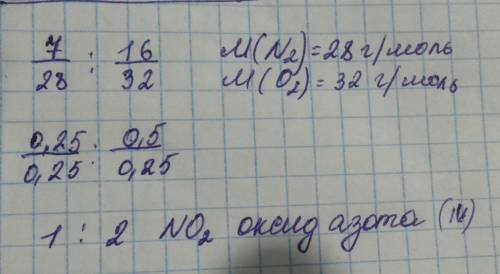 7/28 : 16/32 M(N₂) = 28 г/моль
M(O₂) = 32 г/моль
0,25/0,25 : 0,5/0,25
1 : 2 NO₂ оксид азота (IV)